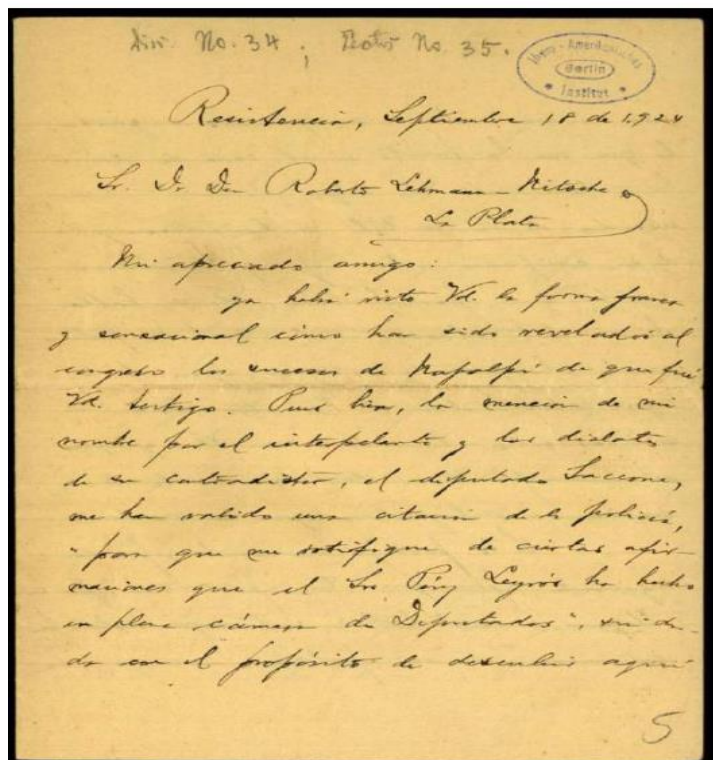 Div. No. 34 ; Teatro No. 35.
Ibero-Amerikanisches
Berlin
Institut
Resistencia, Septiembre 18 de 1924
Sr. Dr. Don Roberto Lehmann-Nitsche
La Plata
Mi apreciado amigo:
ya habrá visto Vd. la forma franca
y sensacional cómo han sido revelados al
congreso los sucesos de Napalpí de que fué
Vd. testigo. Pues bien, la mención de mi
nombre por el interpelante y los dislates
de su contradictor, el diputado Saccone,
me han valido una citación de la policía,
"para que me ratifique de ciertas afir-
maciones que el Sr. Pérez Leyrós ha hecho
en plena cámara de Diputados", sin du-
da con el propósito de descubrir aquí
5